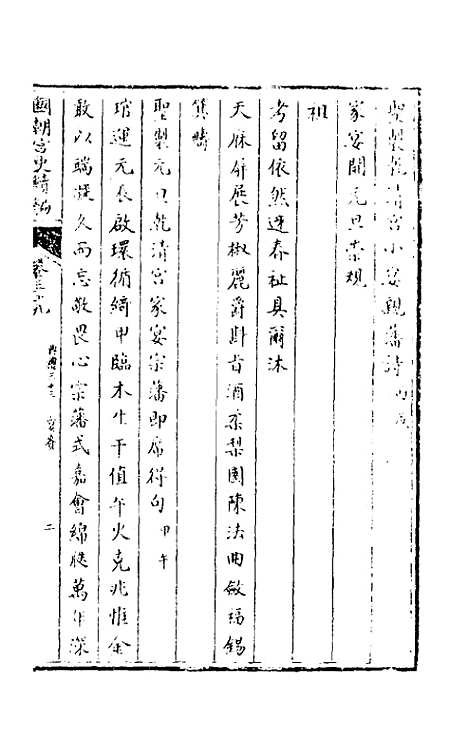 聖製乾清宮小宴親藩詩 丙戌
家宴開元旦崇規
祖
考留依然迓春祉具爾沐
天庥屏展芳椒麗爵斟旨酒柔梨園陳法曲斂福錫
箕疇
聖製元旦乾清宮家宴宗藩即席得句 甲午
琯運元辰啟環循綺甲臨木生干值午火克兆惟金
敢以端凝久而忘敬畏心宗藩式嘉會綿瓞萬年深
國朝宮史續編 卷三十九 內儀三十三 宴 二